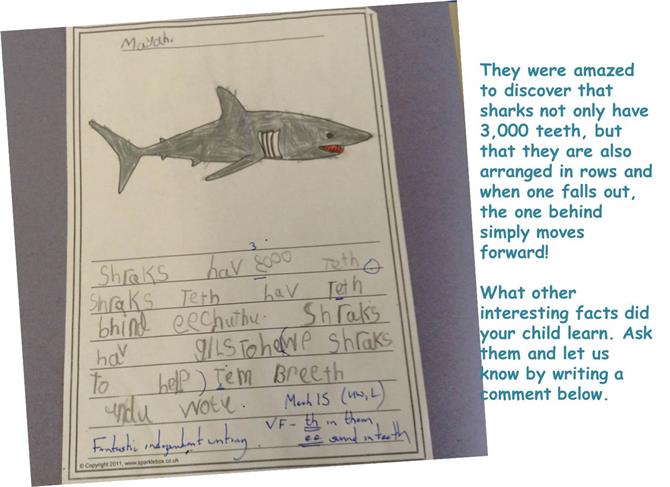 Mayah.
3.
Shraks hav 8000 Teth
Shraks Teth hav Teth
bhind eechuthu. Shraks
hav gils To helpe Shraks
to help) Tem Breeth
undu wotu.
March 15 (HW, L)
VF - th in them,
ee sound in teeth
Fantastic independent writing.
© Copyright 2011, www.sparklebox.co.uk
They were amazed
to discover that
sharks not only have
3,000 teeth, but
that they are also
arranged in rows and
when one falls out,
the one behind
simply moves
forward!
What other
interesting facts did
your child learn. Ask
them and let us
know by writing a
comment below.